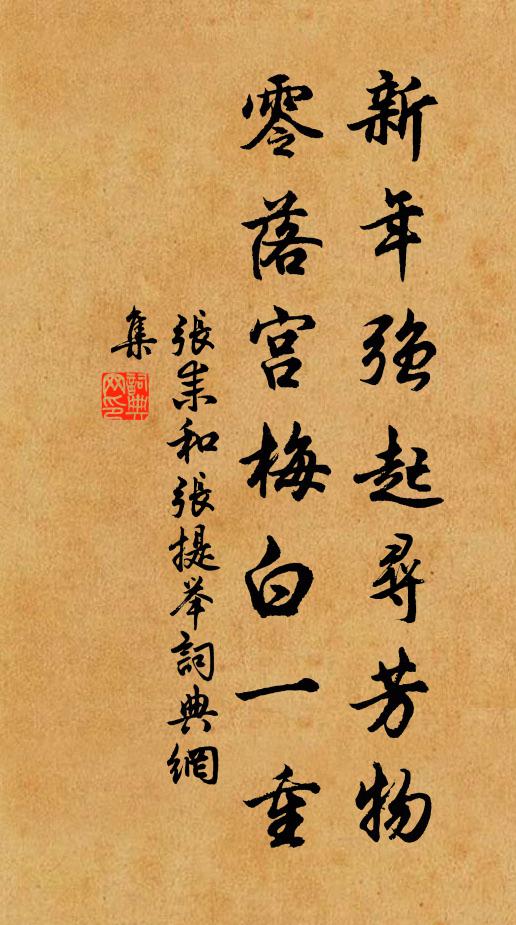 新年強起尋芳物
零落宮梅白一重
張耒和張提举詞典網
集
詞典网印